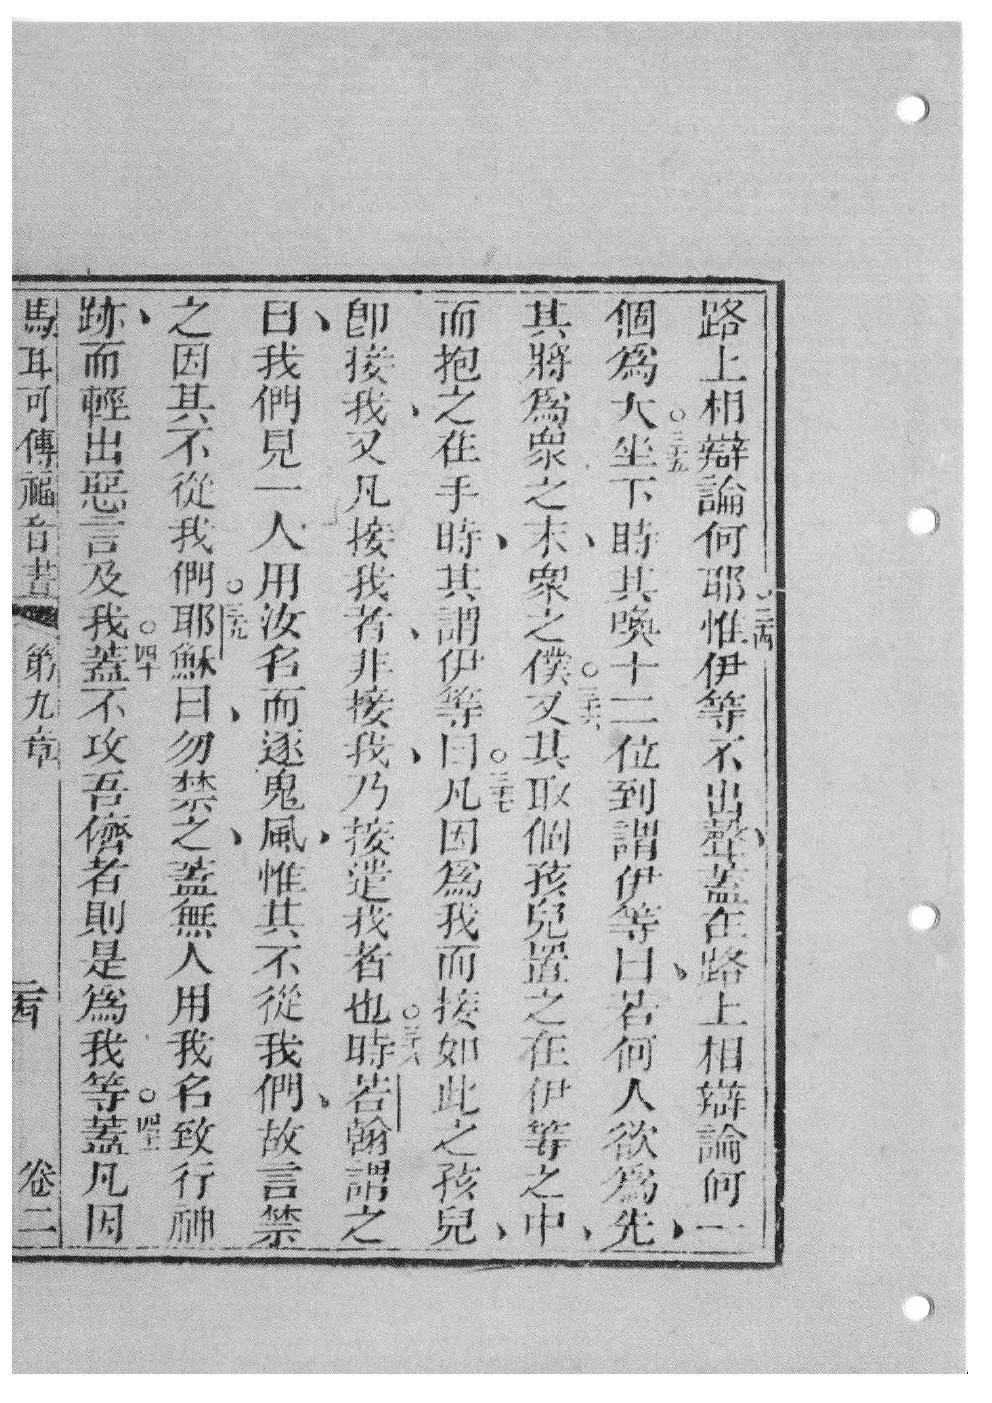 路上相辯論何耶○三十四惟伊等不出聲、蓋在路上相辯論何一
個為大○三十五坐下時其喚十二位到謂伊等曰、若何人欲為先、
其將為眾之末、眾之僕○三十六又其取個孩兒置之在伊等之中、
而抱之在手時、其謂伊等曰○三十七凡因為我而接如此之孩兒、
即接我、又凡接我者、非接我、乃接遣我者也○三十八時若翰謂之
曰、我們見一人用汝名而逐鬼風、惟其不從我們、故言禁
之因其不從我們○三十九耶穌曰、勿禁之、蓋無人用我名致行神
跡、而輕出惡言及我○四十蓋不攻吾儕者則是為我等○四十一蓋凡因
馬耳可傳福音書 第九章 卷二